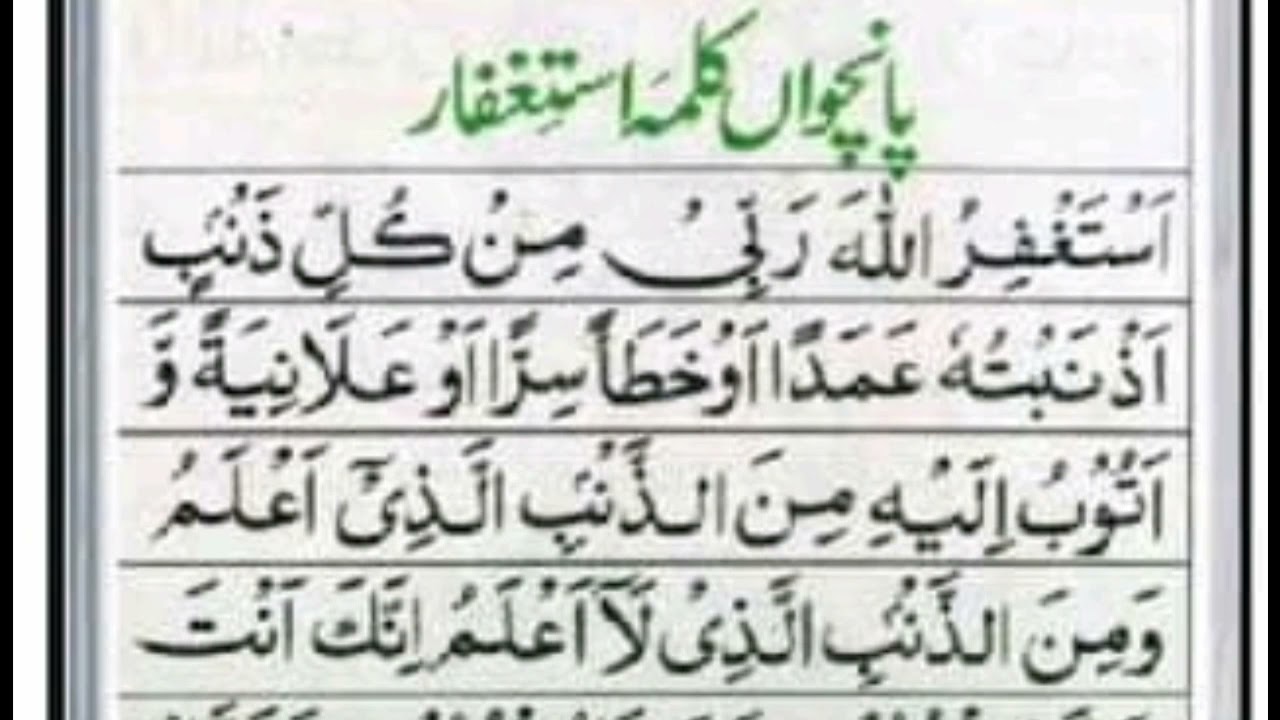 پانچواں کلمہ استغفار
اَسْتَغْفِرُ اللّٰهَ رَبِّیْ مِنْ كُلِّ ذَنْۢبٍ
اَذْنَبْتُهٗ عَمَدًا اَوْ خَطَأً سِرًّا اَوْ عَلَانِیَةً وَّ
اَتُوْبُ اِلَیْهِ مِنَ الذَّنْۢبِ الَّذِیْۤ اَعْلَمُ
وَمِنَ الذَّنْۢبِ الَّذِیْ لَاۤ اَعْلَمُ اِنَّكَ اَنْتَ